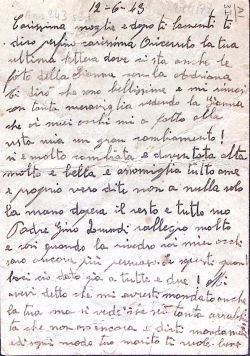 12-6-43
Carissima moglie e dopo ti lamenti ti
diro perfino carissima ricevuto la tua
ultima lettera dove si sta anche le
foto della Gianna con la Adriana
ti diro che sono bellissime e mi
con tanta meraviglia vedendo la Gianna
che ai miei occhi mi a fatto alla
vista una un gran cambiamento!
si e molto cambiata e doventata alta
molto e bella e assomiglia tutto a me
e proprio vero dite non a nulla solo
la mano dopera il resto e tutto suo
Padre Gino rallegro molto
e cosi quando la rivedro coi miei occhi
saro ancora più
baci cio dato gia a tutte e due! Mi
avevi detto che mi avresti mandato anche
la tua ma si vede che sei tanto
ta che non ancora e dirti mandamela
ed ogni modo tuo marito ti vuole bene